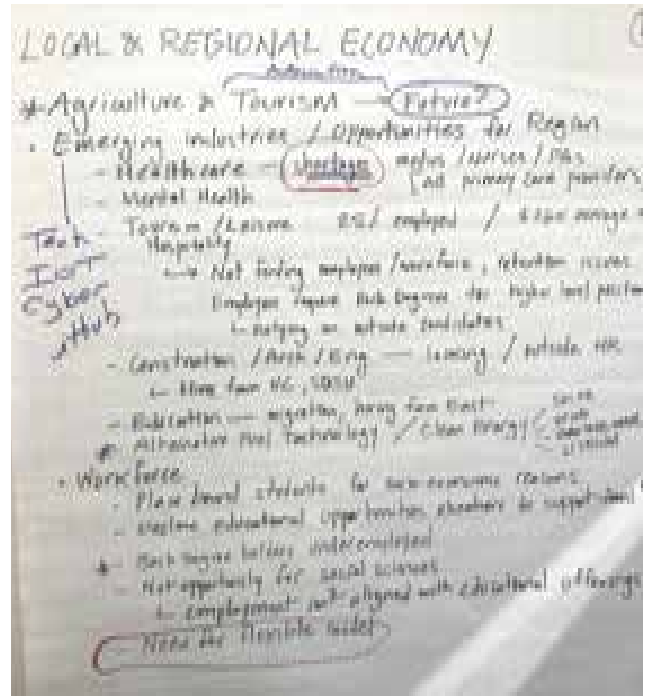 LOCAL & REGIONAL ECONOMY
Automation
* Agriculture & Tourism → Future?
• Emerging industries / Opportunities for Region
- Healthcare - Shortages / nurses /
primary care providers
- Mental Health
- Tourism / Leisure employed /
Hospitality
Tech
Cyber
Hub
→ Not finding employees / workforce, retention issues
Employees require Bach Degrees for higher level
↳ Relying on outside candidates
- Construction / Arch / Eng — leaving / outside
↳ Hire from
- Education — migration, hiring from East
* Alternative Fuel Technology / Clean Energy
• Workforce
- Place bound students for socio-economic reasons
- educational opportunities elsewhere to support
* - Bach Degree holders underemployed
- Not opportunity for social sciences
↳ employment isn't aligned with educational offerings
- Need for flexible model